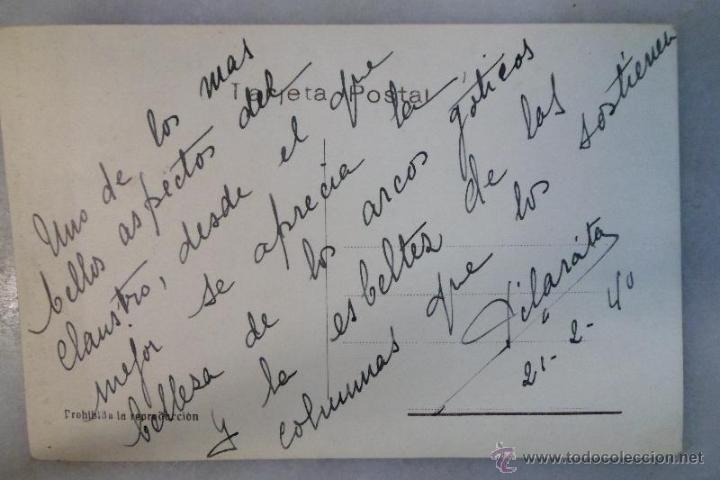 Tarjeta Postal
Uno de los mas
bellos aspectos del
claustro, desde el que
mejor se aprecia la
bellesa de los arcos góticos
y la esbeltez de las
columnas que los sostienen
Pilarita
21-2-40
Prohibida la reproducción
www.todocoleccion.net